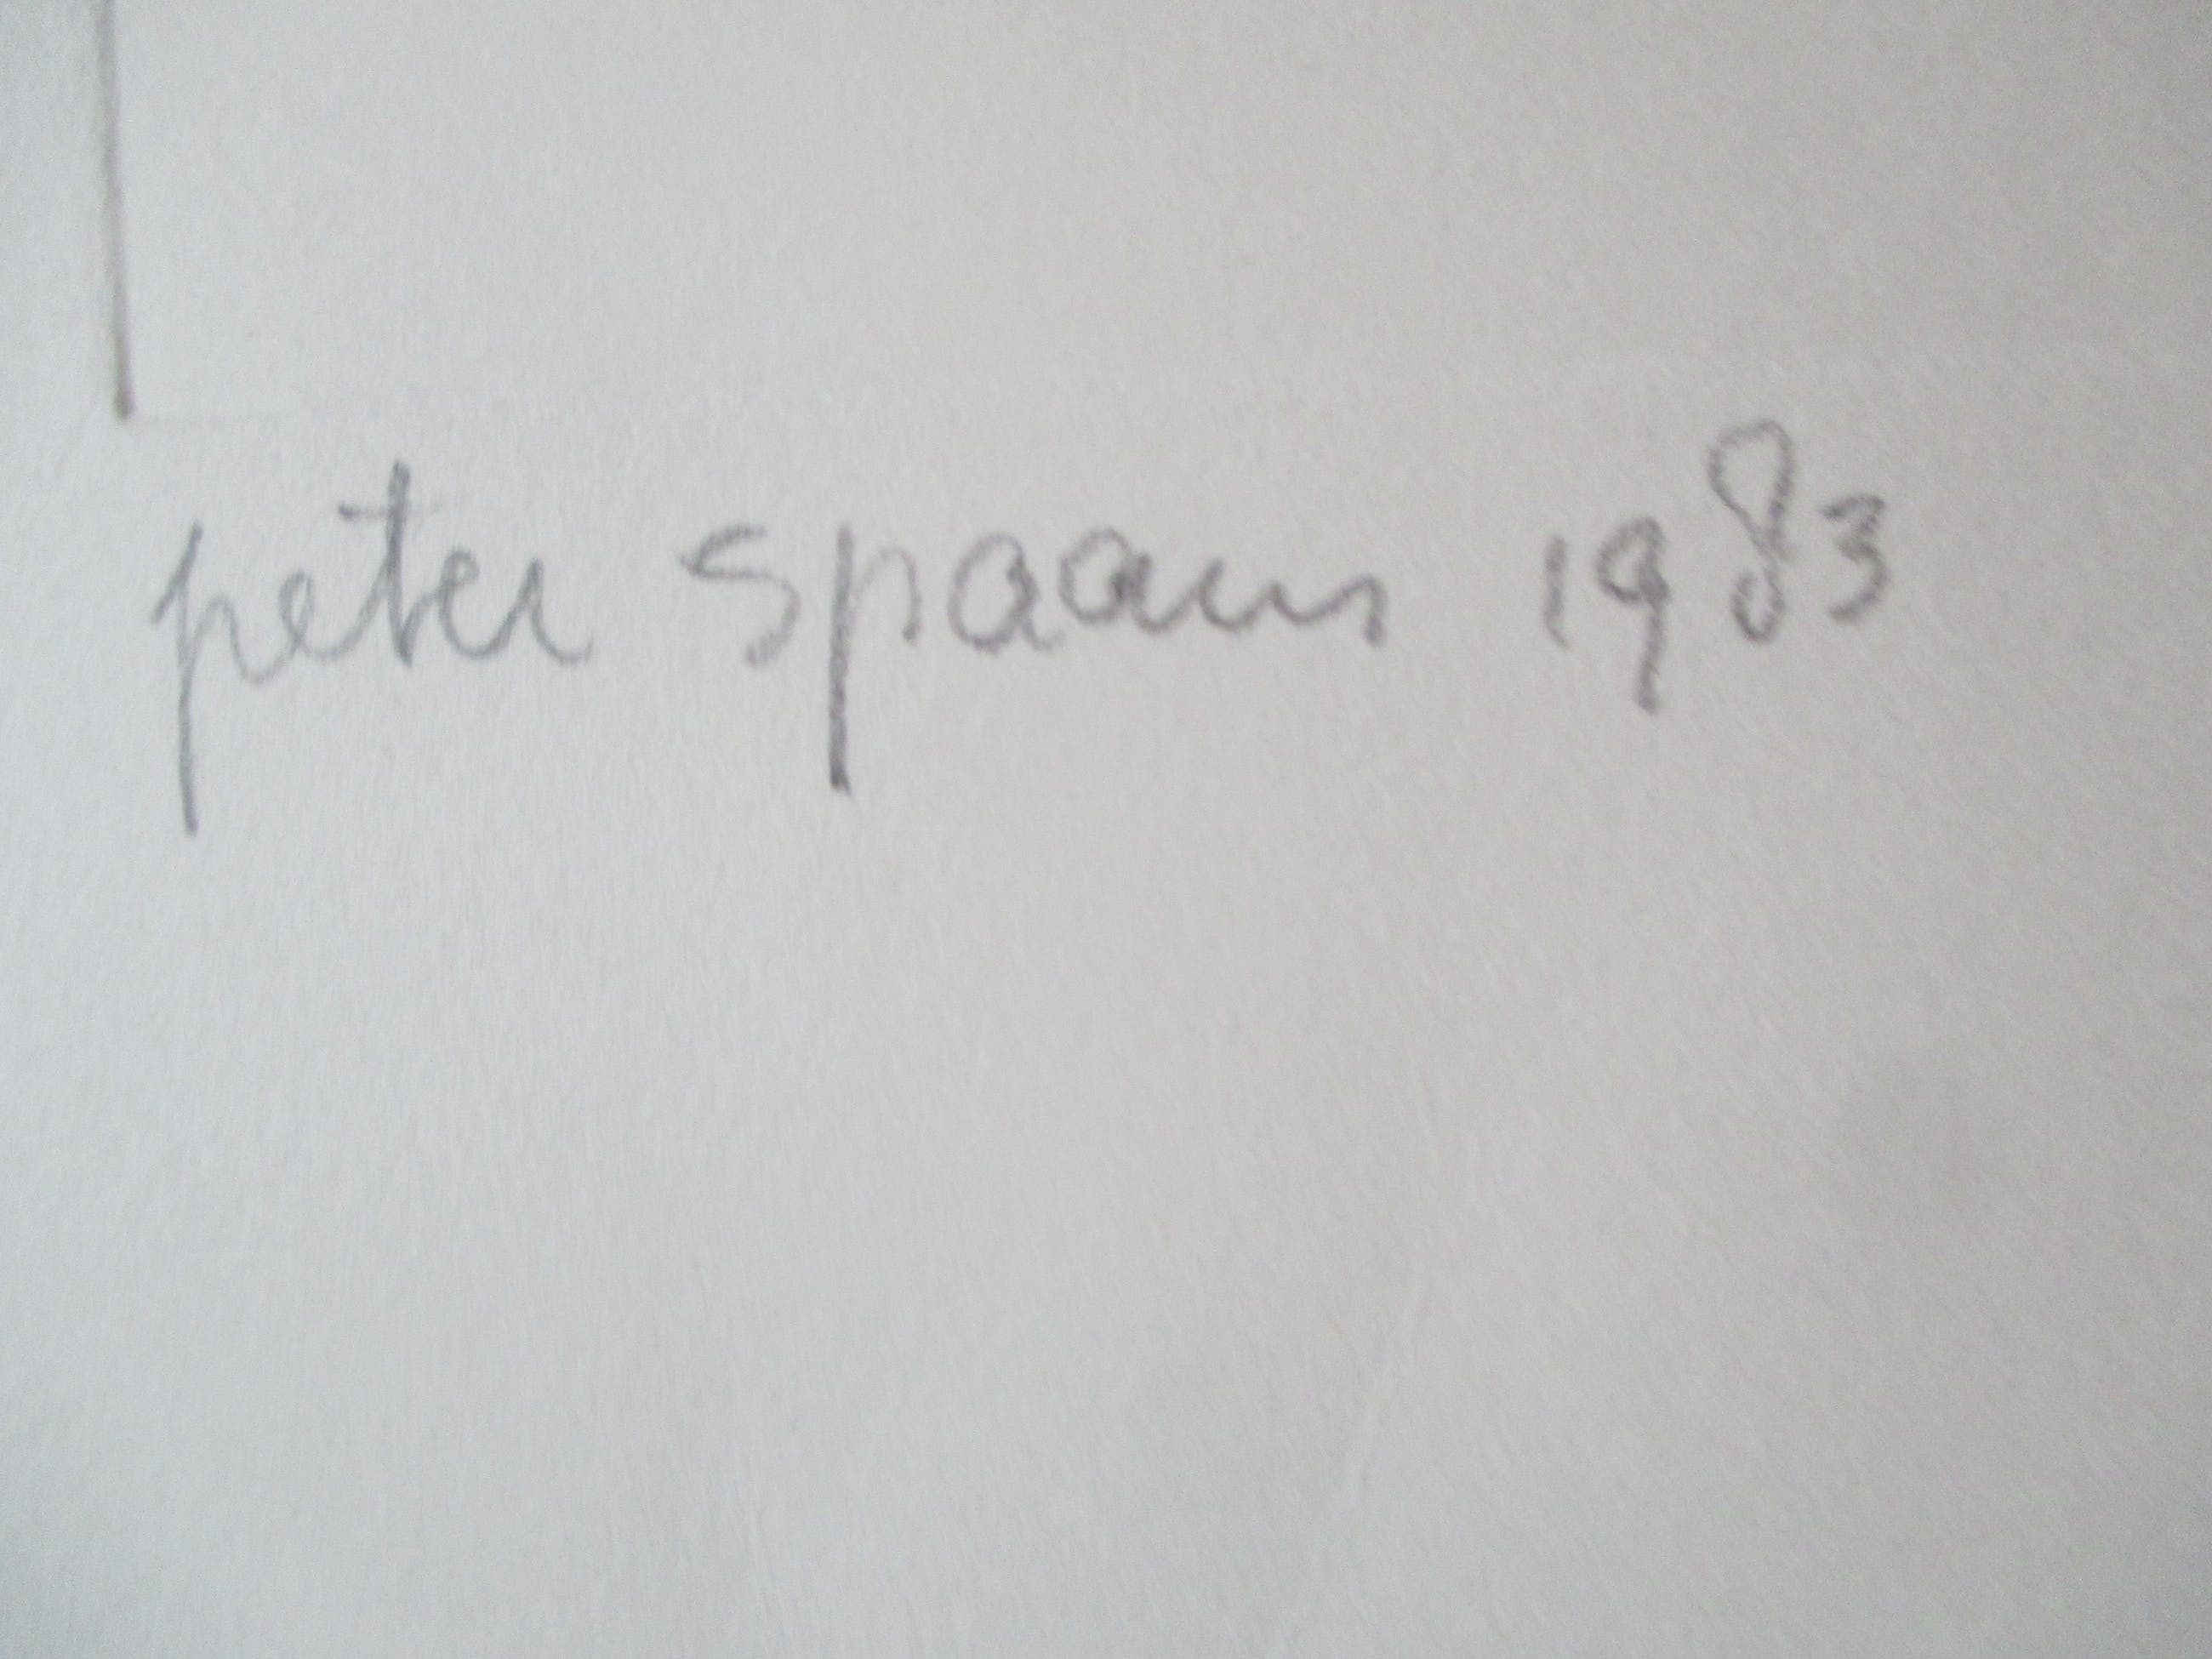 peter spaans 1983